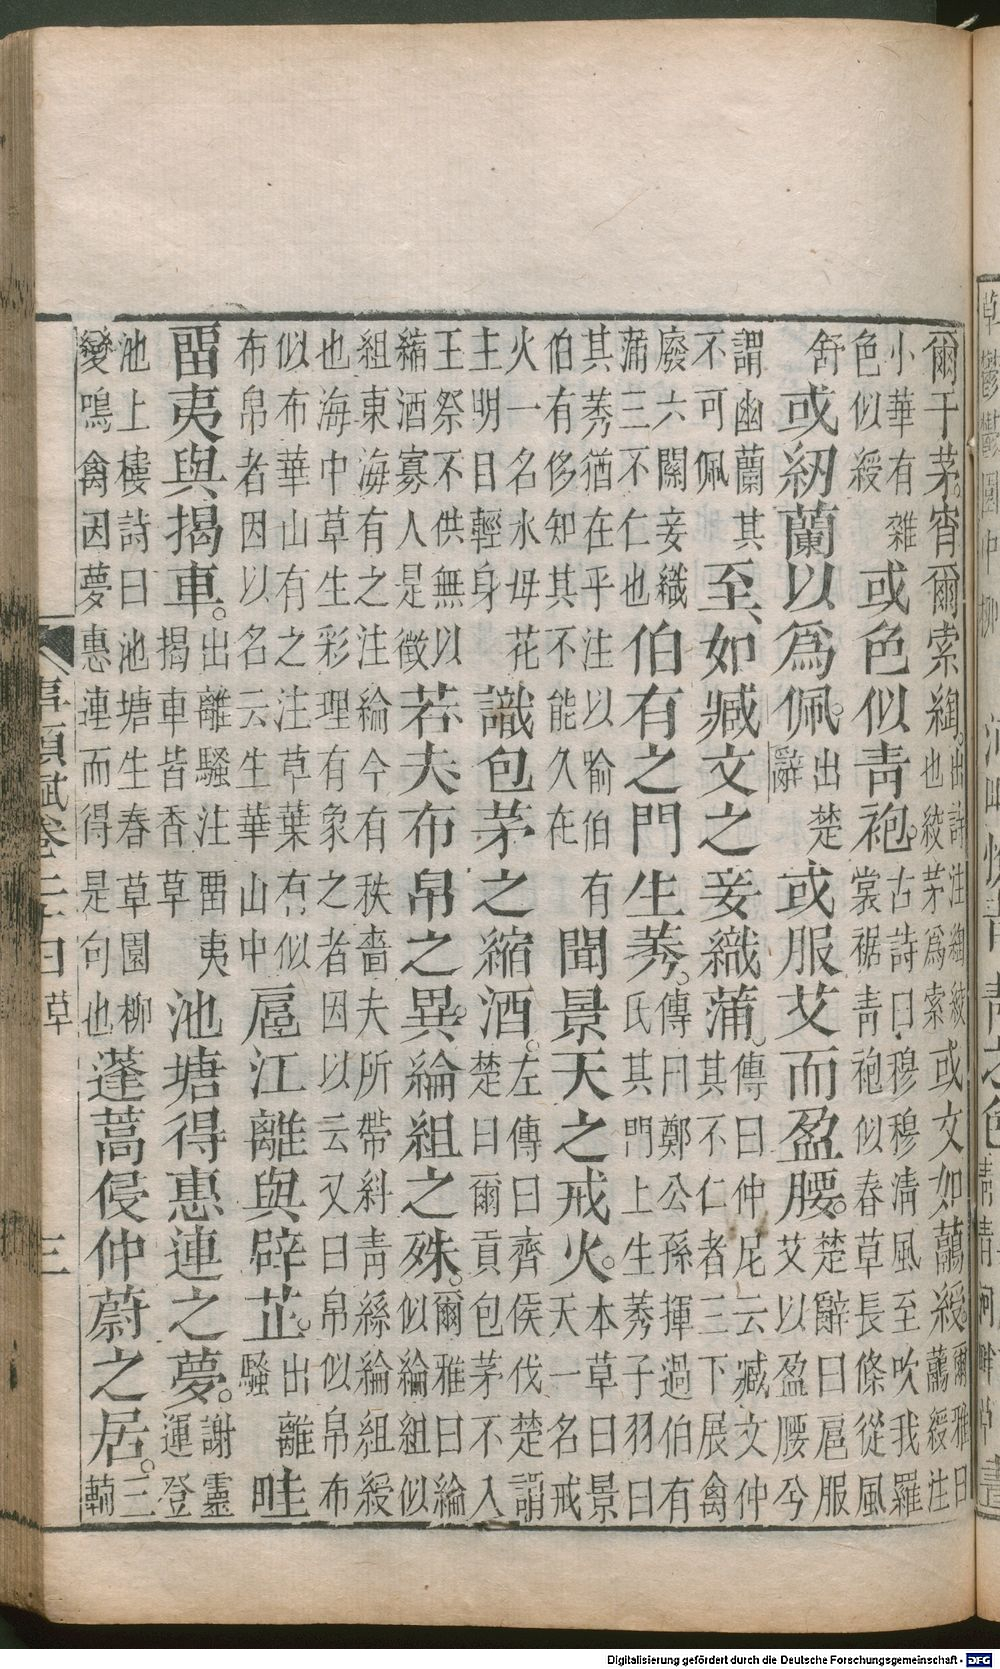 爾于茅。宵爾索綯。出詩注綯絞也絞茅爲索或文如虉綬。爾雅曰虉綬注
小華有雜色似綬或色似青袍。古詩曰穆穆清風至吹我羅裳裾青袍似春草長條從風
舒或紉蘭以爲佩。出楚辭或服艾而盈腰。楚辭曰扈服艾以盈腰兮
謂幽蘭其不可佩至如臧文之妾織蒲。傳曰仲尼云臧文仲其不仁者三下展禽
廢六關妾織蒲三不仁也伯有之門生莠。傳曰鄭公孫揮過伯有氏其門上生莠子羽曰
其莠猶在乎注以喻伯有伯有侈知其不能久在聞景天之戒火。本草曰景天一名戒
火一名水母花主明目輕身識包茅之縮酒。左傳曰齊侯伐楚謂楚曰爾貢包茅不入
王祭不供無以縮酒寡人是徵若夫布帛之異。綸組之殊。爾雅曰綸似綸組似
組東海有之注綸今有秩嗇夫所帶糾青絲綸組綬也海中草生彩理有象之者因以云又曰帛似帛布
似布華山有之注草葉有似布帛者因以名云生華山中扈江離與辟芷。出離騷畦
畱夷與揭車。出離騷注畱夷揭車皆香草池塘得惠連之夢。謝靈運登
池上樓詩曰池塘生春草園柳變鳴禽因夢惠連而得是句也蓬蒿侵仲蔚之居。三輔
事類賦卷二十四 草 三
Digitalisierung gefördert durch die Deutsche Forschungsgemeinschaft - DFG